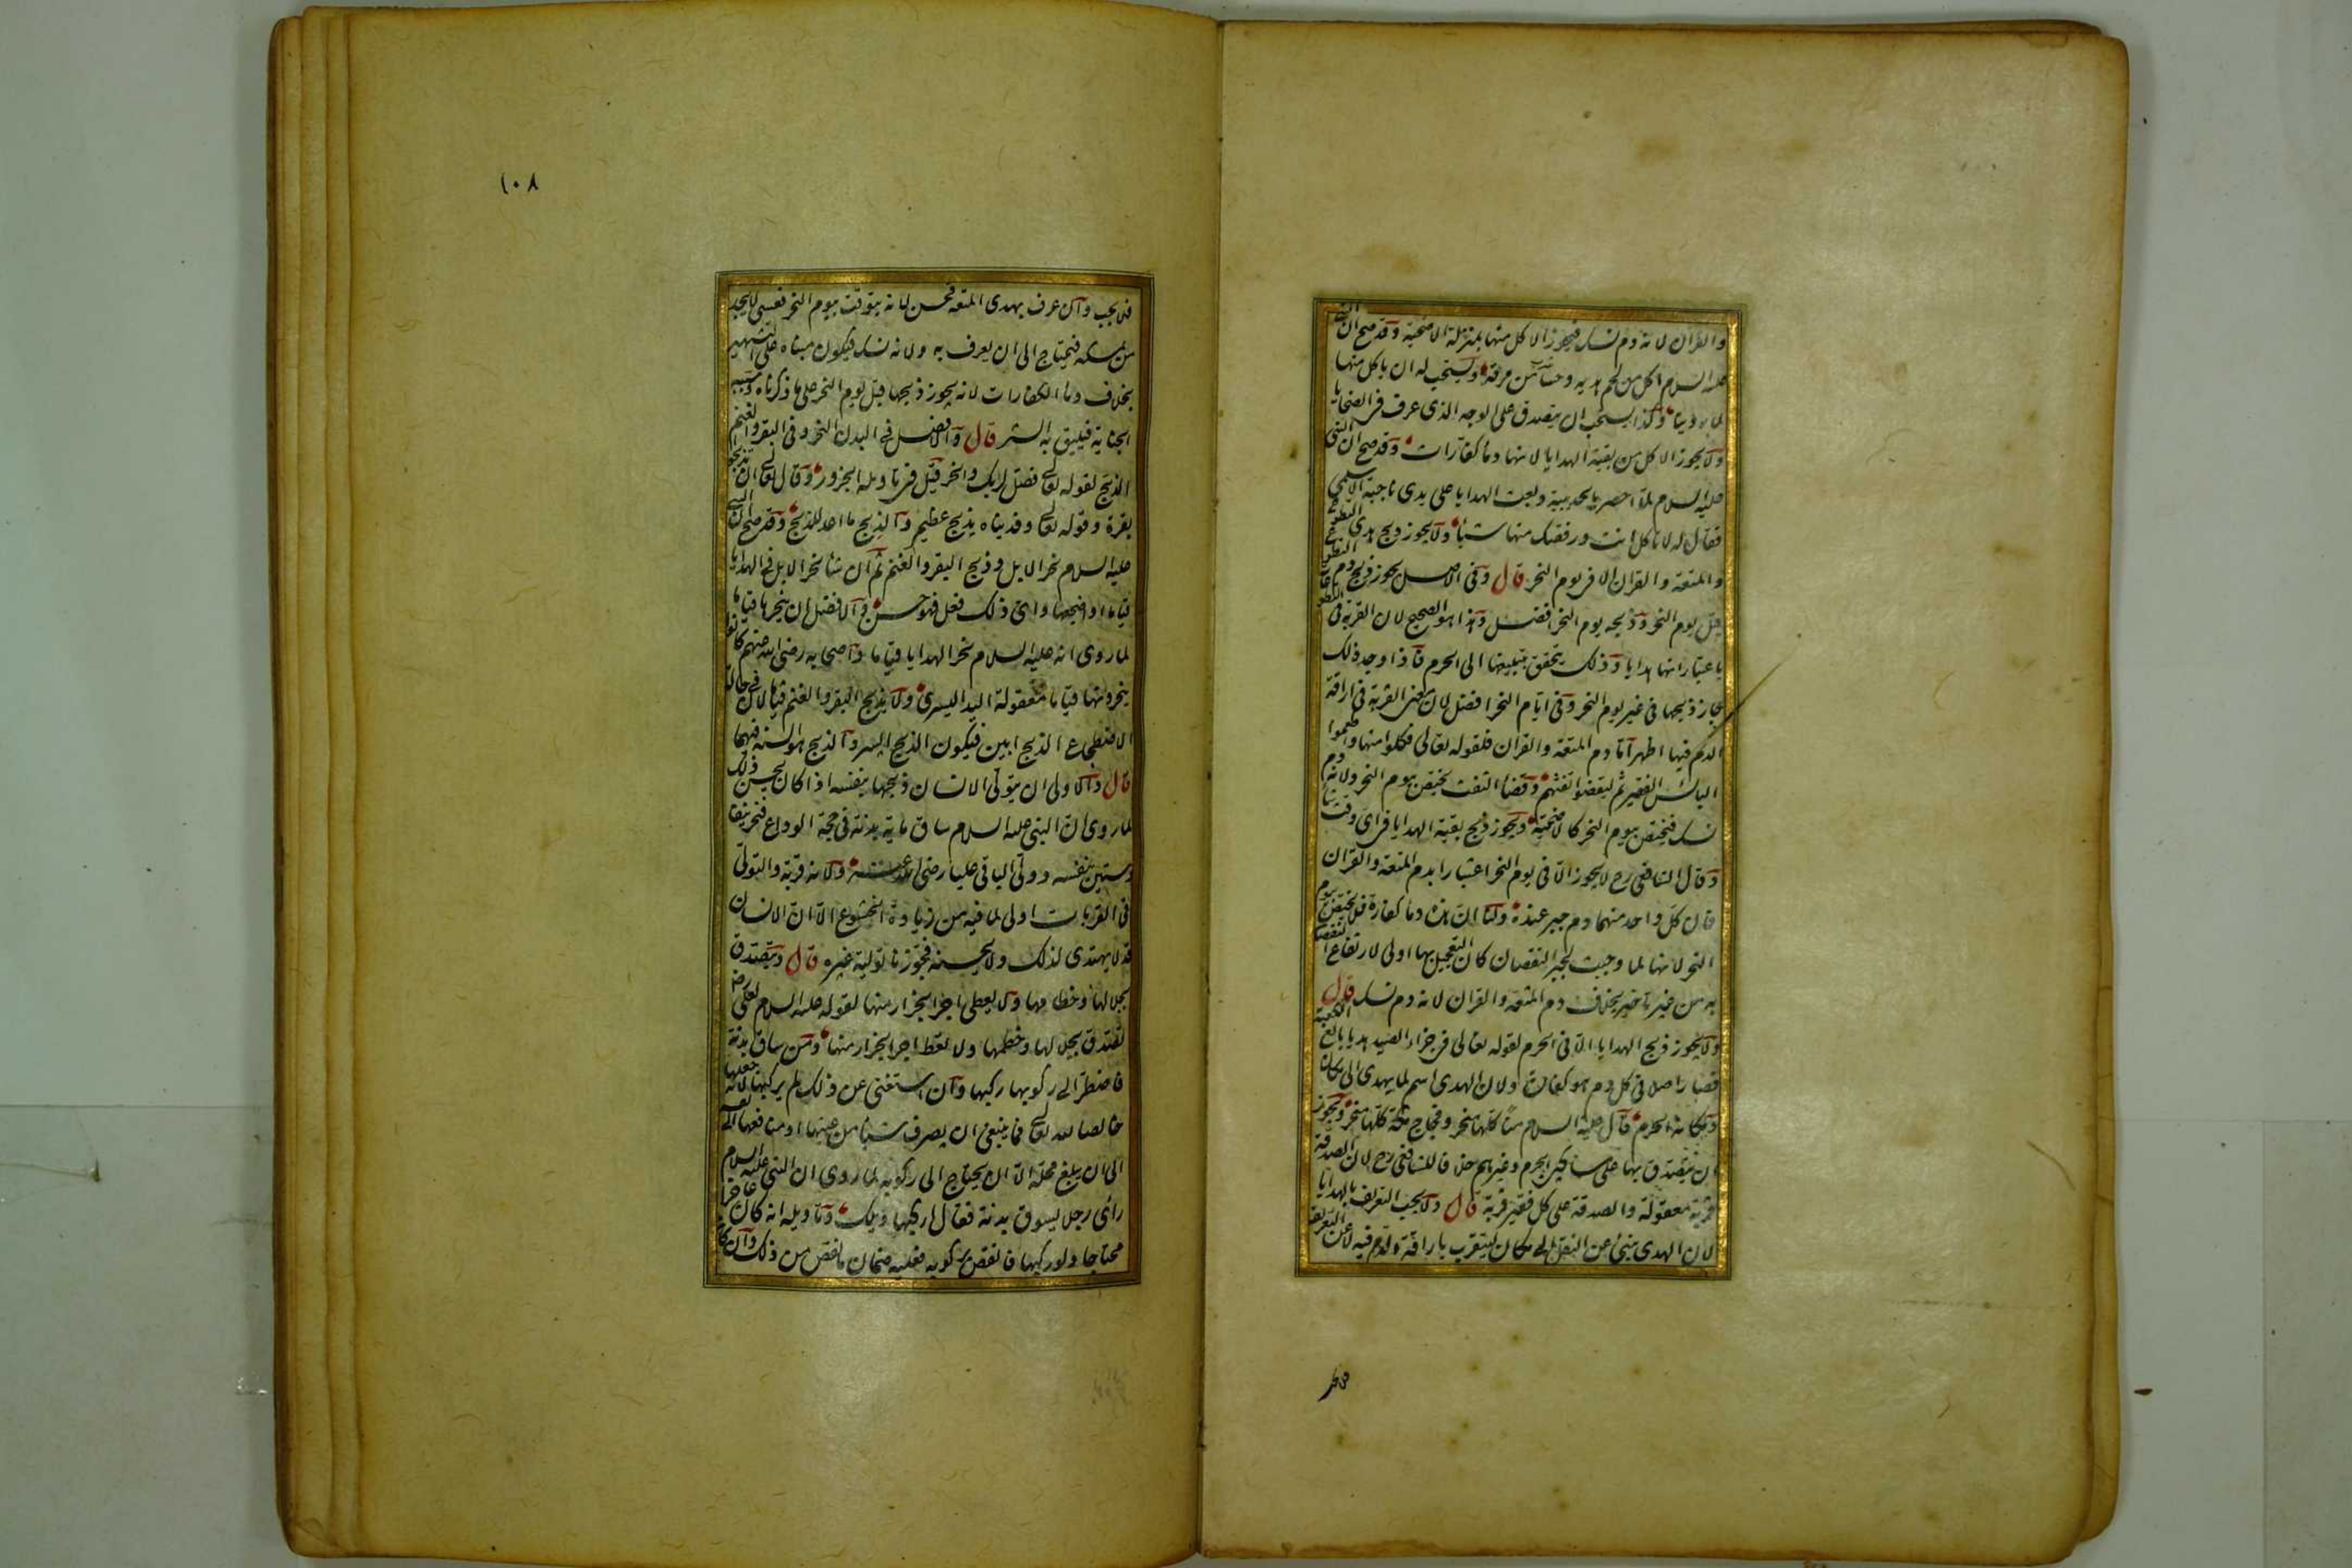 والقران لانه دم نسك فيجوز الاكل منها بمنزلة الاضحية وقد صح ان النبى
عليه السلام اكل من لحم هديه وحسا من مرقه ويستحب له ان ياكل منها
لما روينا وكذا يستحب ان يتصدق على الوجه الذى عرف فى الضحايا
ولا يجوز الاكل من بقية الهدايا لانها دماء كفارات وقد صح ان النبى
عليه السلام لما احصر بالحديبية وبعث الهدايا على يدى ناجية الاسلمى
فقال له لا تاكل انت ورفقتك منها شيئا ولا يجوز ذبح هدى التطوع
والمتعة والقران الا فى يوم النحر قال وفى الاصل يجوز ذبح دم التطوع
قبل يوم النحر وذبحه يوم النحر افضل وهذا هو الصحيح لان القربة فى التطوعات
باعتبار انها هدايا وذلك يتحقق بتبليغها الى الحرم فاذا وجد ذلك
جاز ذبحها فى غير يوم النحر وفى ايام النحر افضل لان معنى القربة فى اراقة
الدم فيها اظهر اما دم المتعة والقران فلقوله تعالى فكلوا منها واطعموا
البائس الفقير ثم ليقضوا تفثهم وقضاء التفث يختص بيوم النحر ولانه دم
نسك فيختص بيوم النحر كالاضحية ويجوز ذبح بقية الهدايا فى اى وقت شاء
وقال الشافعى رح لا يجوز الا فى يوم النحر اعتبارا بدم المتعة والقران
فان كل واحد منهما دم جبر عنده ولنا ان هذه دماء كفارة فلا يختص بيوم
النحر لانها لما وجبت لجبر النقصان كان التعجيل بها اولى لارتفاع النقصان
به من غير تاخير بخلاف دم المتعة والقران لانه دم نسك قال
ولا يجوز ذبح الهدايا الا فى الحرم لقوله تعالى فى جزاء الصيد هديا بالغ الكعبة
فصار اصلا فى كل دم هو كفارة ولان الهدى اسم لما يهدى الى مكان
ومكانه الحرم قال عليه السلام منا كلها منحر وفجاج مكة كلها منحر ويجوز
ان يتصدق بها على مساكين الحرم وغيرهم خلافا للشافعى رح لان الصدقة
قربة معقولة والصدقة على كل فقير قربة قال ولا يجب التعريف بالهدايا
لان الهدى ينبئ عن النقل الى مكان ليتقرب باراقة دم فيه لا عن التعريف
١٠٨
فلا يجب وان عرف بهدى المتعة فحسن لانه يتوقت بيوم النحر فعسى لا يجد
من يمسكه فيحتاج الى ان يعرف به ولانه نسك فيكون مبناه على التشهير
بخلاف دماء الكفارات لانه يجوز ذبحها قبل يوم النحر على ما ذكرناه وسببه
الجناية فيليق به الستر قال والافضل فى البدن النحر وفى البقر والغنم
الذبح لقوله تعالى فصل لربك وانحر قيل فى تاويله الجزور وقال تعالى ان تذبحوا
بقرة وقوله تعالى وفديناه بذبح عظيم والذبح ما اعد للذبح وقد صح ان النبى
عليه السلام نحر الابل وذبح البقر والغنم ثم ان شاء نحر الابل فى الهدايا
قياما او اضجعها واى ذلك فعل فهو حسن والافضل ان ينحرها قياما
لما روى انه عليه السلام نحر الهدايا قياما واصحابه رضى الله عنهم كانوا
ينحرونها قياما معقولة اليد اليسرى ولا يذبح البقر والغنم قياما لان فى حالة
الاضطجاع المذبح ابين فيكون الذبح ايسر والذبح هو السنة فيهما
قال والاولى ان يتولى الانسان ذبحها بنفسه اذا كان يحسن ذلك
لما روى ان النبى عليه السلام ساق ماية بدنة فى حجة الوداع فنحر نيفا
وستين بنفسه وولى الباقى عليا رضى الله عنه ولانه قربة والتولى
فى القربات اولى لما فيه من زيادة الخشوع الا ان الانسان
قد لا يهتدى لذلك ولا يحسنه فجوزنا تولية غيره قال ويتصدق
بجلالها وخطامها ولا يعطى اجر الجزار منها لقوله عليه السلام لعلى رض
تصدق بجلالها وخطمها ولا تعط اجر الجزار منها ومن ساق بدنة
فاضطر الى ركوبها ركبها وان استغنى عن ذلك لم يركبها لانه جعلها
خالصا لله تعالى فما ينبغى ان يصرف شيئا من عينها او منافعها الى نفسه
الى ان يبلغ محله الا ان يحتاج الى ركوبه لما روى ان النبى عليه السلام
رأى رجلا يسوق بدنة فقال اركبها ويلك وتاويله انه كان عاجزا
محتاجا ولو ركبها فانتقص بركوبه فعليه ضمان ما نقص من ذلك وان كان